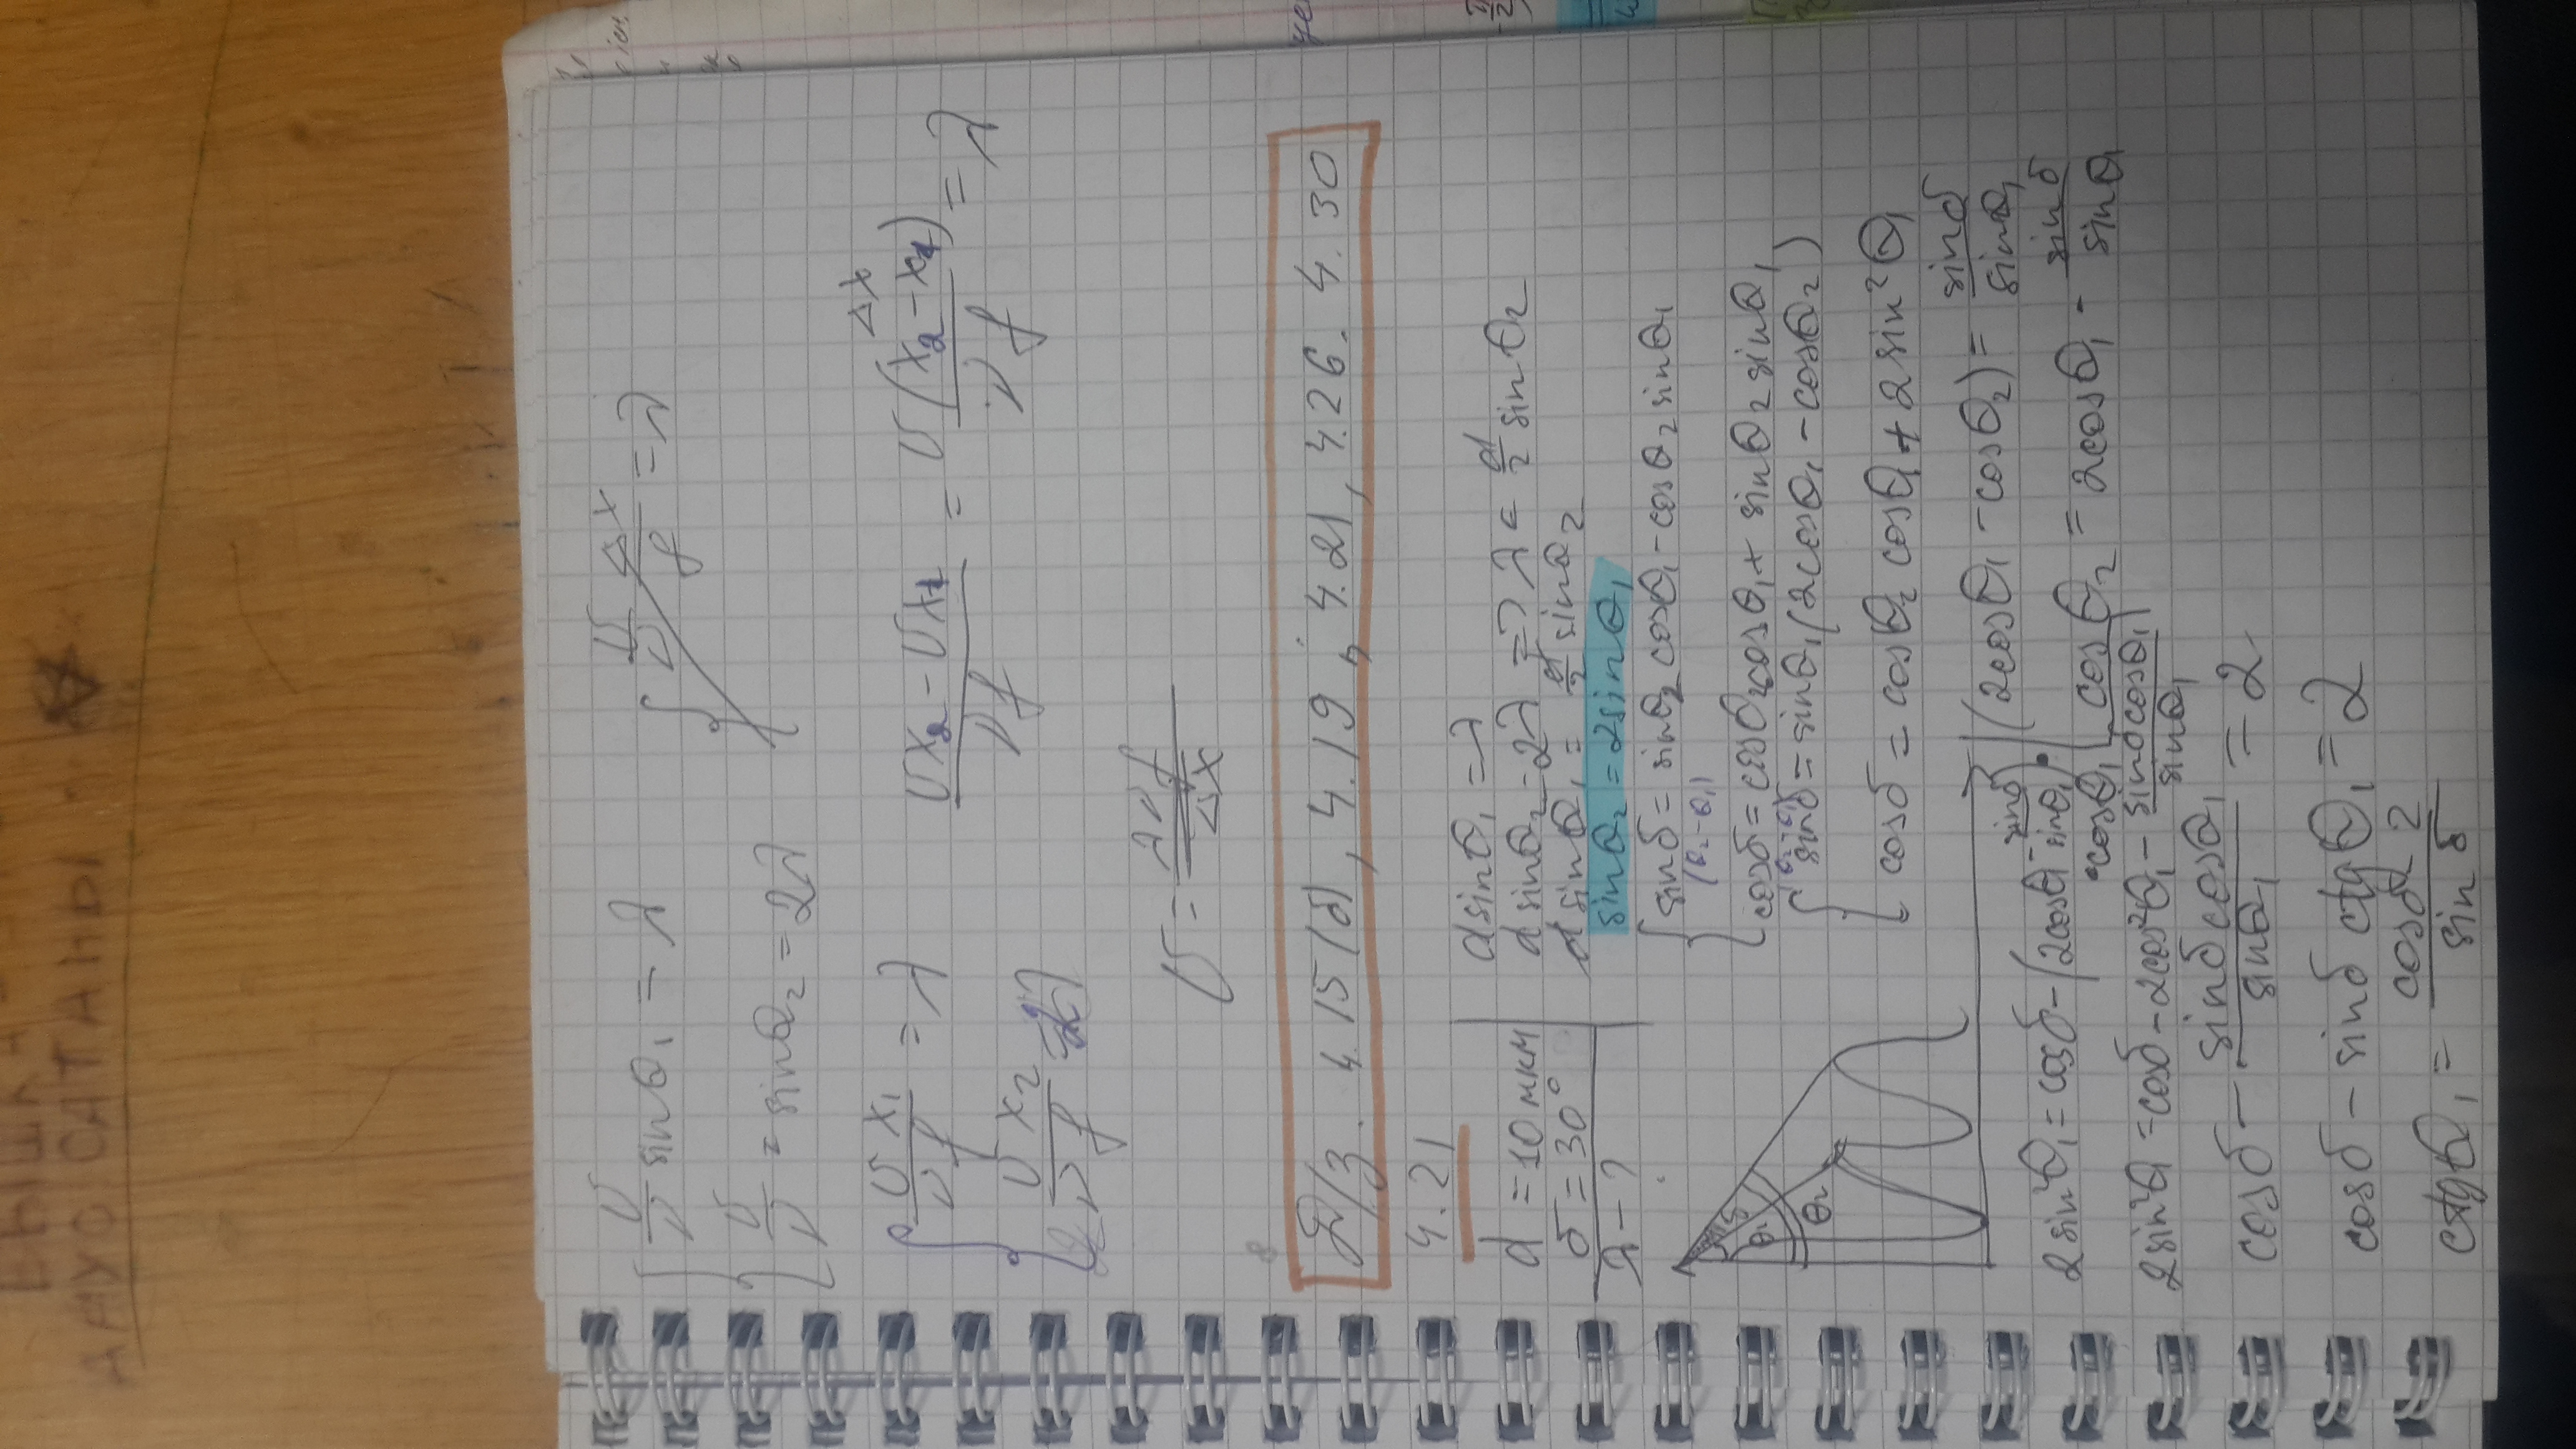 ВЫШКА -
АНУС САТАНЫ
υ/ν sinθ₁ = λ
υ/ν = sinθ₂ = 2λ
υ/ν Δx/f = λ
υx₁/νf = λ
υx₂/νf = 2λ
Δx
(υx₂ - υx₁)/νf = υ(x₂ - x₁)/νf = λ
υ = λνf/Δx
Д/з. 4.15(б), 4.19, 4.21, 4.26. 4.30
4.21
d = 10 мкм
δ = 30°
λ - ?
dsinθ₁ = λ
dsinθ₂ = 2λ => λ = d/2 sinθ₂
dsinθ₁ = d/2 sinθ₂
sinθ₂ = 2sinθ₁
sinδ = sinθ₂ cosθ₁ - cosθ₂ sinθ₁
(θ₂ - θ₁)
cosδ = cosθ₂ cosθ₁ + sinθ₂ sinθ₁
(θ₂ - θ₁)
sinδ = sinθ₁(2cosθ₁ - cosθ₂)
cosδ = cosθ₂ cosθ₁ + 2sin²θ₁
δ
θ₁
θ₂
(2cosθ₁ - cosθ₂) = sinδ/sinθ₁
cosθ₂ = 2cosθ₁ - sinδ/sinθ₁
2sin²θ₁ = cosδ - (2cosθ₁ - sinδ/sinθ₁)·
·cosθ₁
2sin²θ₁ = cosδ - 2cos²θ₁ - sinδcosθ₁/sinθ₁
cosδ - sinδcosθ₁/sinθ₁ = 2
cosδ - sinδ ctgθ₁ = 2
ctgθ₁ = (cosδ - 2)/sinδ